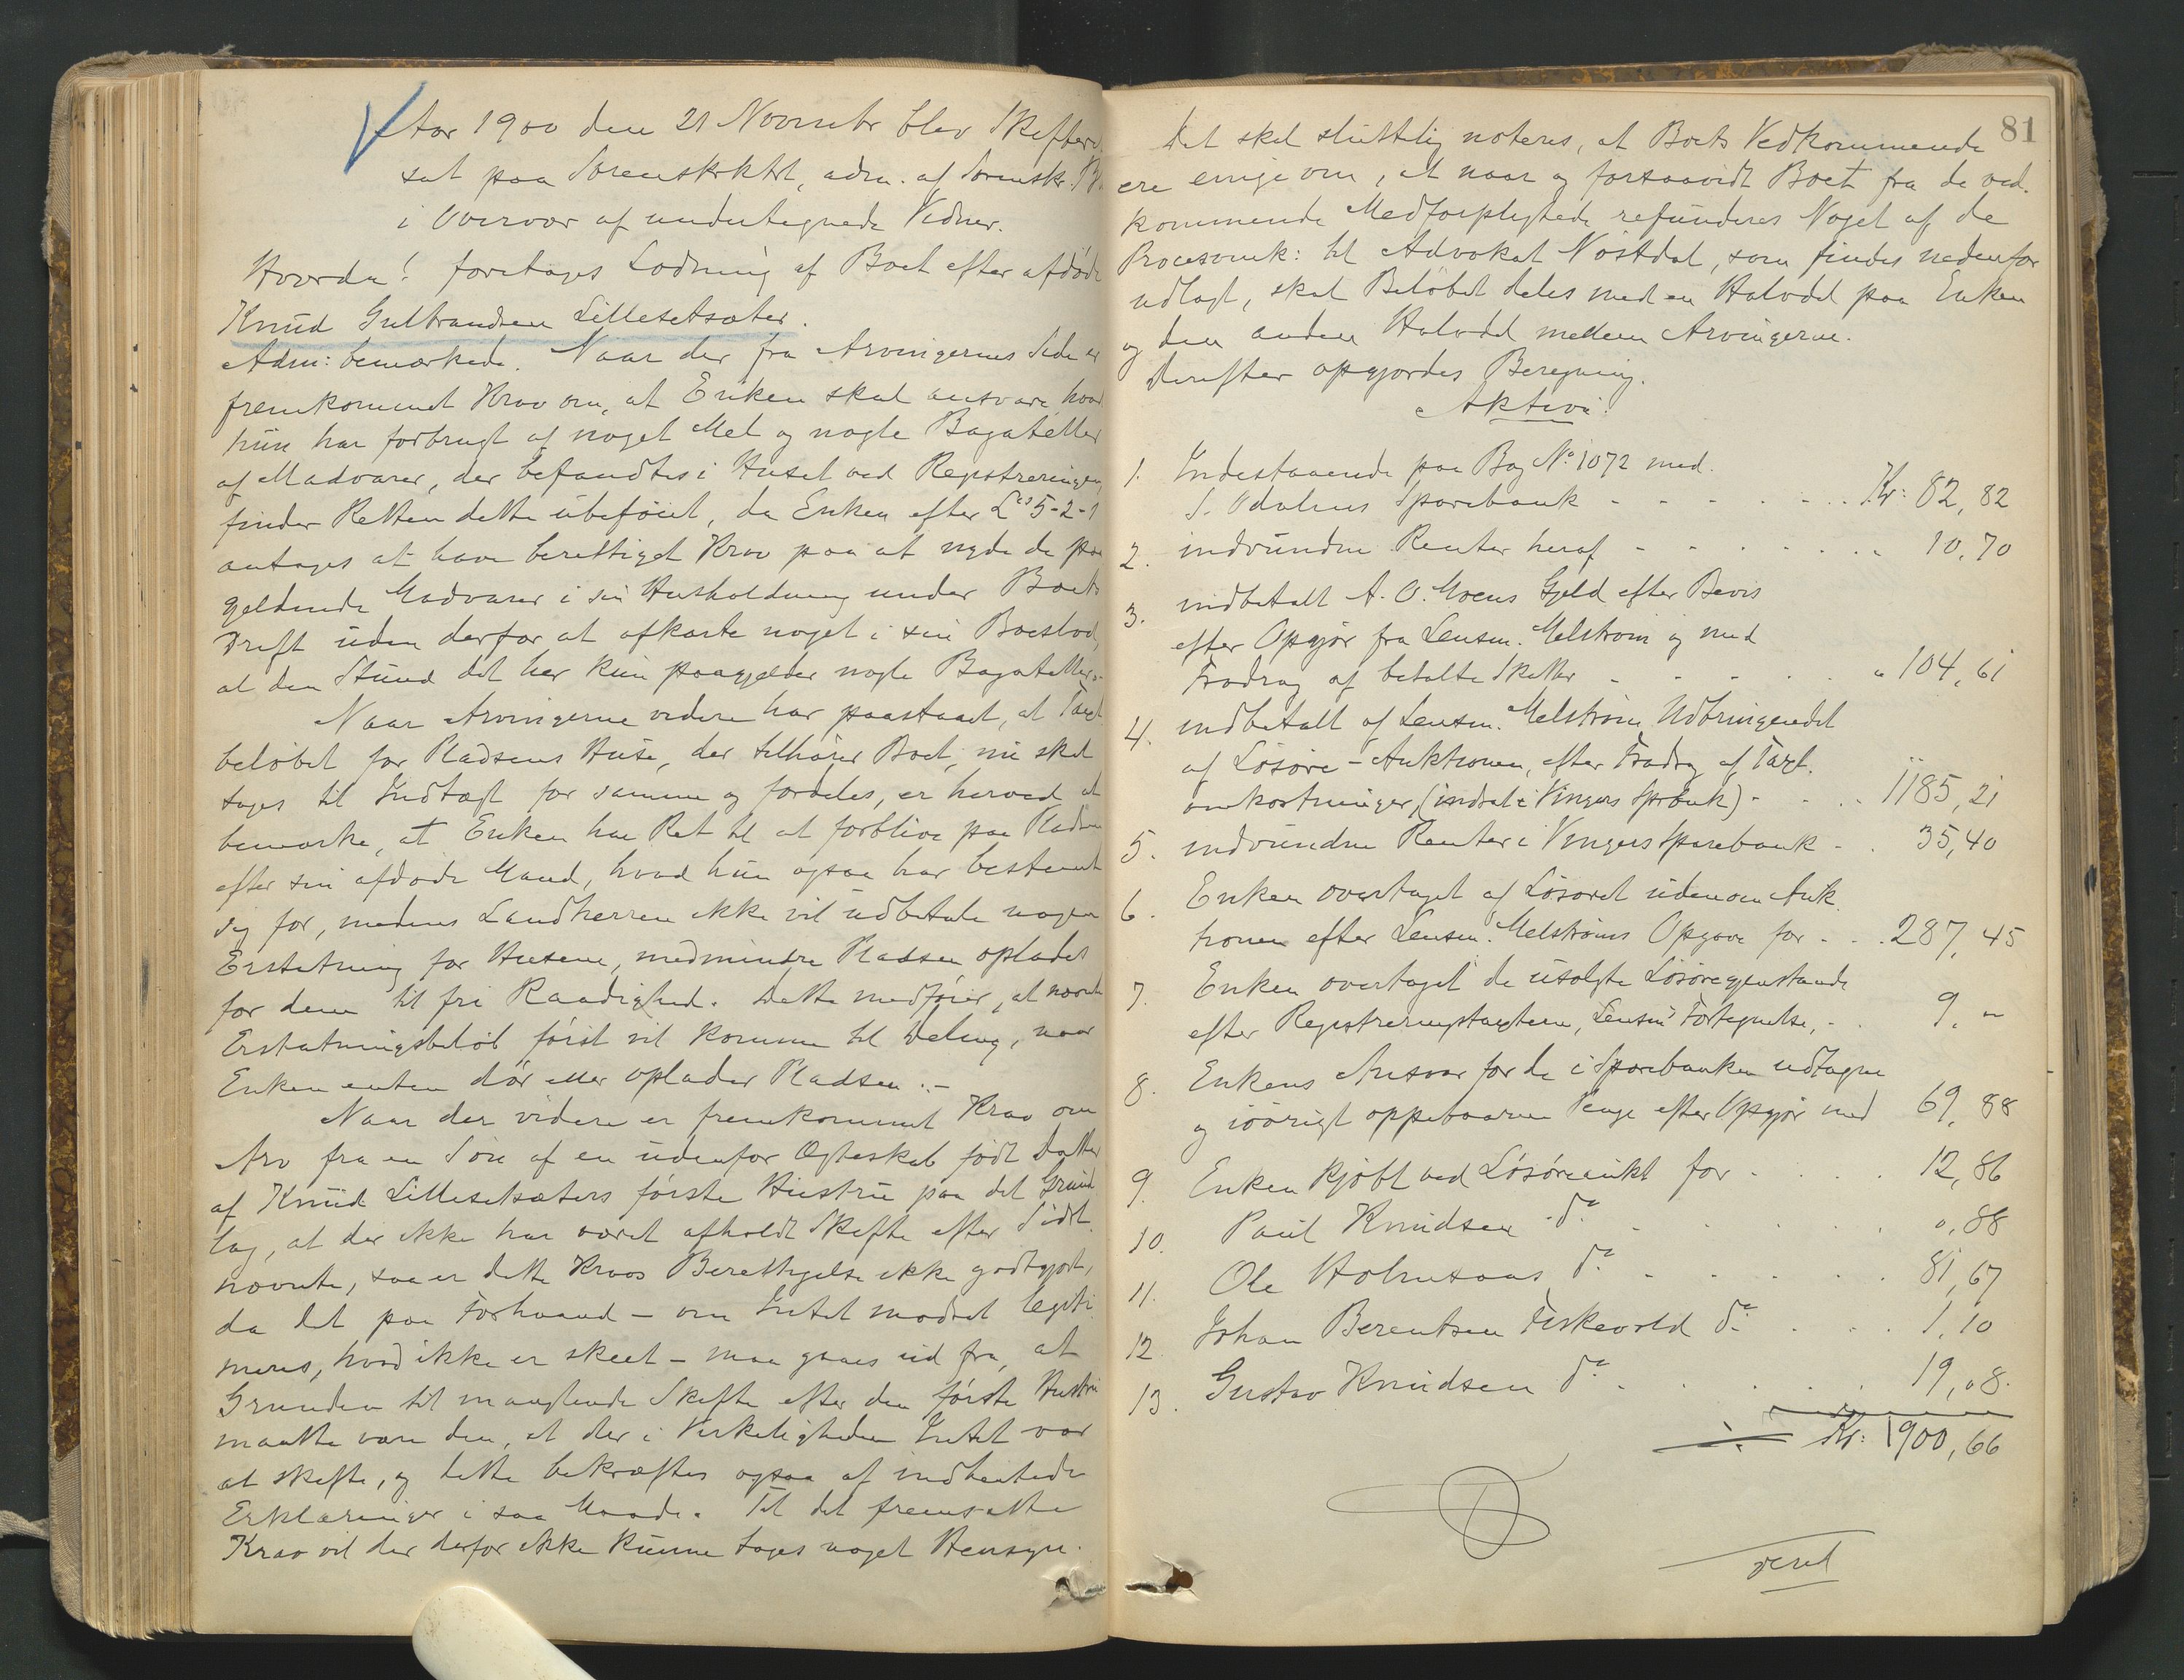 Aar 1900 den 21 Novembr blev Skifteret
sat paa Sorenskrktrt, adm. af Sorenskr.
i Overvær af undertegnede Vidner.
Hvorda! foretages Lodning af Boet efter afdöde
Knud Gulbrandsen Lillesetsæter.
Adm: bemærkede. Naar der fra Arvingernes Side er
fremkommet Krav om, at Enken skal ansvare, hvad
hun har forbrugt af noget Mel og nogle Bagateller
af Madvarer, der befandtes i Huset ved Registreringen,
finder Retten dette ubeföiet, da Enken efter L 5-2-1
antages at have berettiget Krav paa at nyde de paa
gjeldende Madvarer i sin Husholdning under Boets
Drift uden derfor at afkorte noget i sin Boeslod,
al den Stund det her kun paagjælder nogle Bagateller.-
Naar Arvingerne videre har paastaaet, at Taxt
belöbet for Pladsens Huse, der tilhörer Boet, nu skal
tages til Indtægt for samme og fordeles, er herved at
bemærke, at Enken har Ret til at forblive paa Pladsen
efter sin afdöde Mand, hvad hun ogsaa har bestemt
sig for, medens Landherren ikke vil udbetale nogen
Erstatning for Husene, medmindre Pladsen oplades
for dem til fri Raadighed. Dette medförer, at nævnte
Erstatningsbelöb först vil komme til Deling, naar
Enken enten dör eller oplader Pladsen.-
Naar der videre er fremkommet Krav om
Arv fra en Sön af en udenfor Ægteskab födt Datter
af Knud Lillesetsæters förste Hustru paa det Grund
lag, at der ikke har været afholdt Skifte efter Sidst
nævnte, saa er dette Kravs Berettigelse ikke godtgjort,
da det paa Forhaand - om Intet modsat legiti
meres, hvad ikke er skeet - maa gaaes ud fra, at
Grunden til manglende Skifte efter den förste Hustru
maatte være den, at der i Virkeligheden Intet var
at skifte, og dette bekræftes ogsaa af indhentede
Erklæringer i saa Maade. Til det fremsatte
Krav vil der derfor ikke kunne tages noget Hensyn.
81
Det skal sluttelig noteres, at Boets Vedkommende
ere enige om, at naar og forsaavidt Boet fra de ved.
kommende Medforpligtede refunderes Noget af de
Procesomk: til Advokat Nöstdal, som findes nedenfor
udlagt, skal Belöbet deles med en Halvdel paa Enken
og den anden Halvdel mellem Arvingerne.
Derefter opgjordes Beregning.
Aktiva:
1. Indestaaende paa Bog No 1072 med
S. Odalens Sparebank - - - - - Kr: 82,82
2. indvundne Renter heraf - - - - - " 10,70
3. indbetalt A. O. Moens Gjeld efter Bevis
efter Opgjör fra Lensm. Melström og med
Fradrag af betalte Skatter - - - - - " 104,61
4. indbetalt af Lensm. Melström Udbringendet
af Lösöre-Auktionen, efter Fradrag af Taxt.
omkostninger, (indsat i Vingers Sprbnk) - - - 1185,21
5. indvundne Renter i Vingers Sparebank - . 35,40
6. Enken overtaget af Lösöret udenom Auk
tionen efter Lensm. Melströms Opgave for - . . 287,45
7. Enken overtaget de usolgte Lösöregjenstande
efter Registreringstaxterne, Lensms Fortegnelse, - . 9,"
8. Enkens Ansvar for de i Sparebanken udtagne
og iövrigt oppebaarne Penge efter Opgjör med 69,88
9. Enken kjöbt ved Lösöreaukt for - . . . 12,86
10. Paul Knudsen do . . . . . 0,88
11. Ole Holmsaas do . . . . . 81,67
12. Johan Berentsen Fiskevold do . . . 1,10
13. Gustav Knudsen do . . . . . 19,08.
Kr: 1900,66